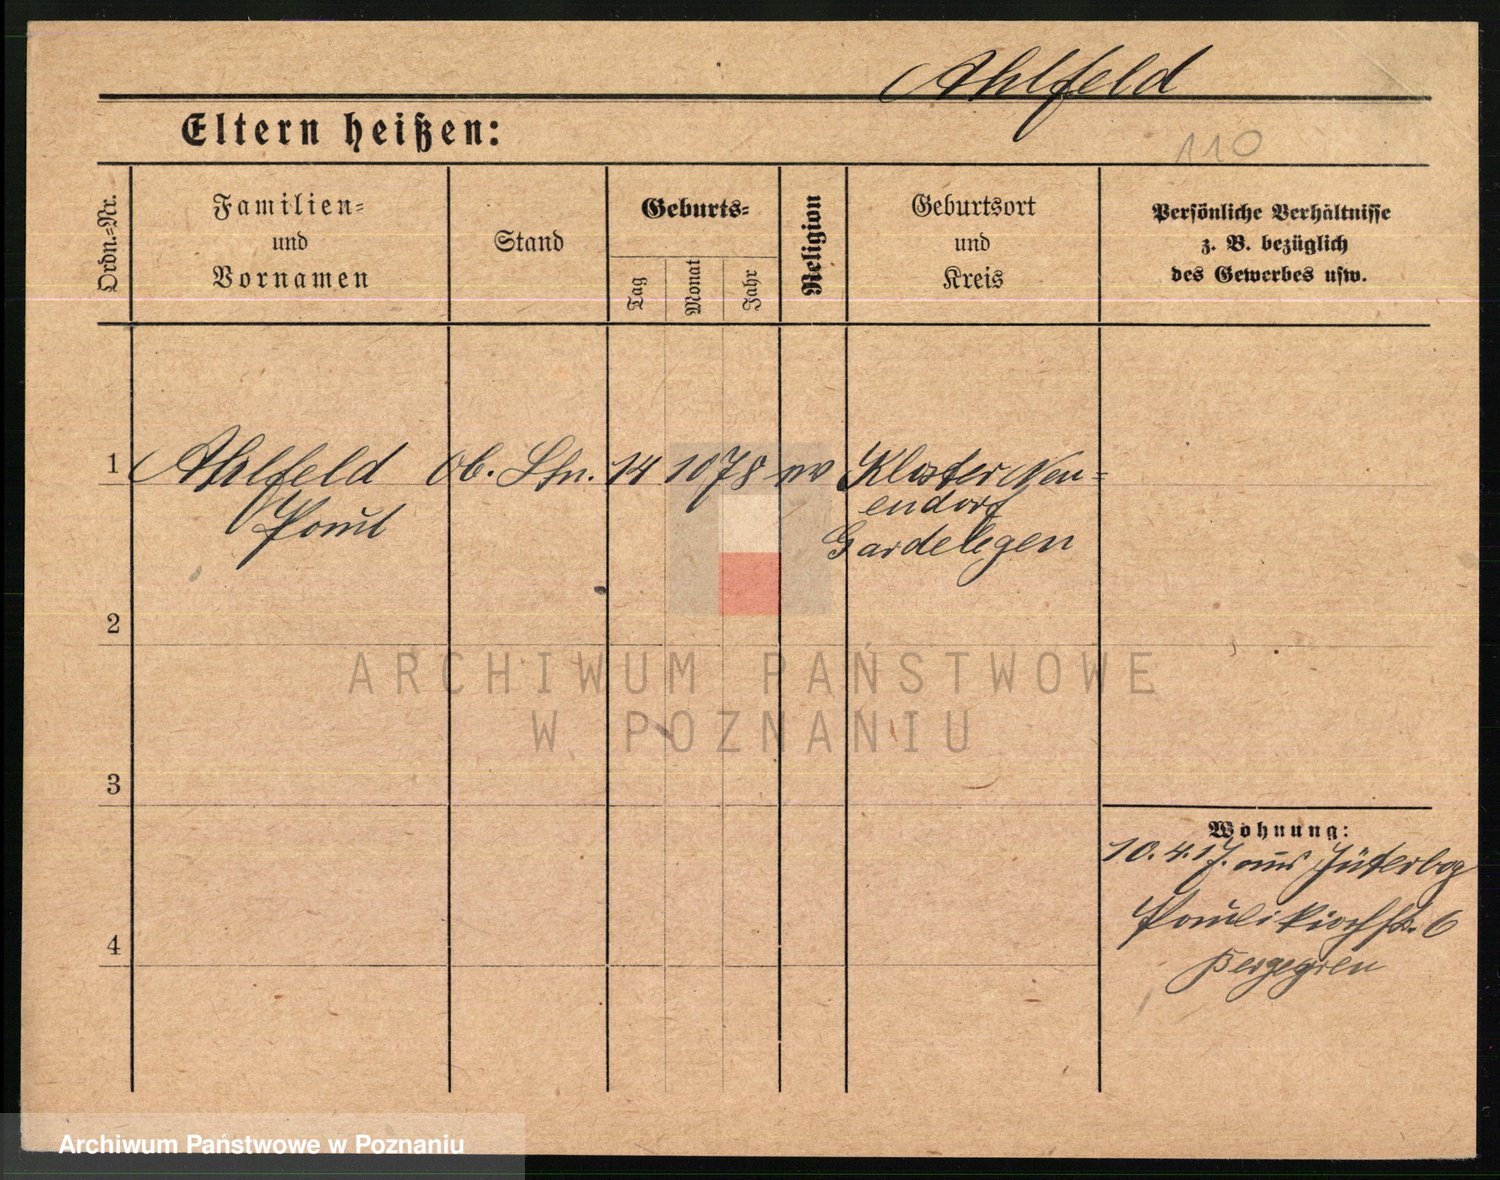 Ahlfeld
Eltern heißen:
110
Ordn.-Nr.
Familien-
und
Vornamen
Stand
Geburts-
Tag
Monat
Jahr
Religion
Geburtsort
und
Kreis
Persönliche Verhältnisse
z. B. bezüglich
des Gewerbes usw.
1 Ahlfeld Ob. Ltn. 14 10 78 ev Kloster Neu-
Paul endorf
Gardelegen
2
3
4
Wohnung:
10. 4. 17. aus Jüterbog
Paulikirchstr. 6
ARCHIWUM PAŃSTWOWE
W POZNANIU
Archiwum Państwowe w Poznaniu